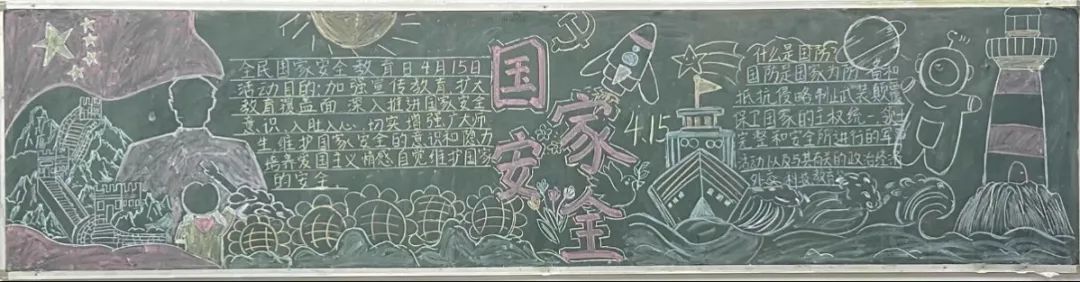 全民国家安全教育日4月15日
活动目的:加强宣传教育,扩大
教育覆盖面,深入推进国家安全
意识、入脑入心,切实增强广大师
生维护国家安全的意识和能力
培养爱国主义情感自觉维护国家
的安全
国家安全
4.15
什么是国防?
国防是国家为防备和
抵抗侵略制止武装颠覆
保卫国家的主权统一领土
完整和安全所进行的军事
活动以及与其有关的政治经济
外交 科技教育